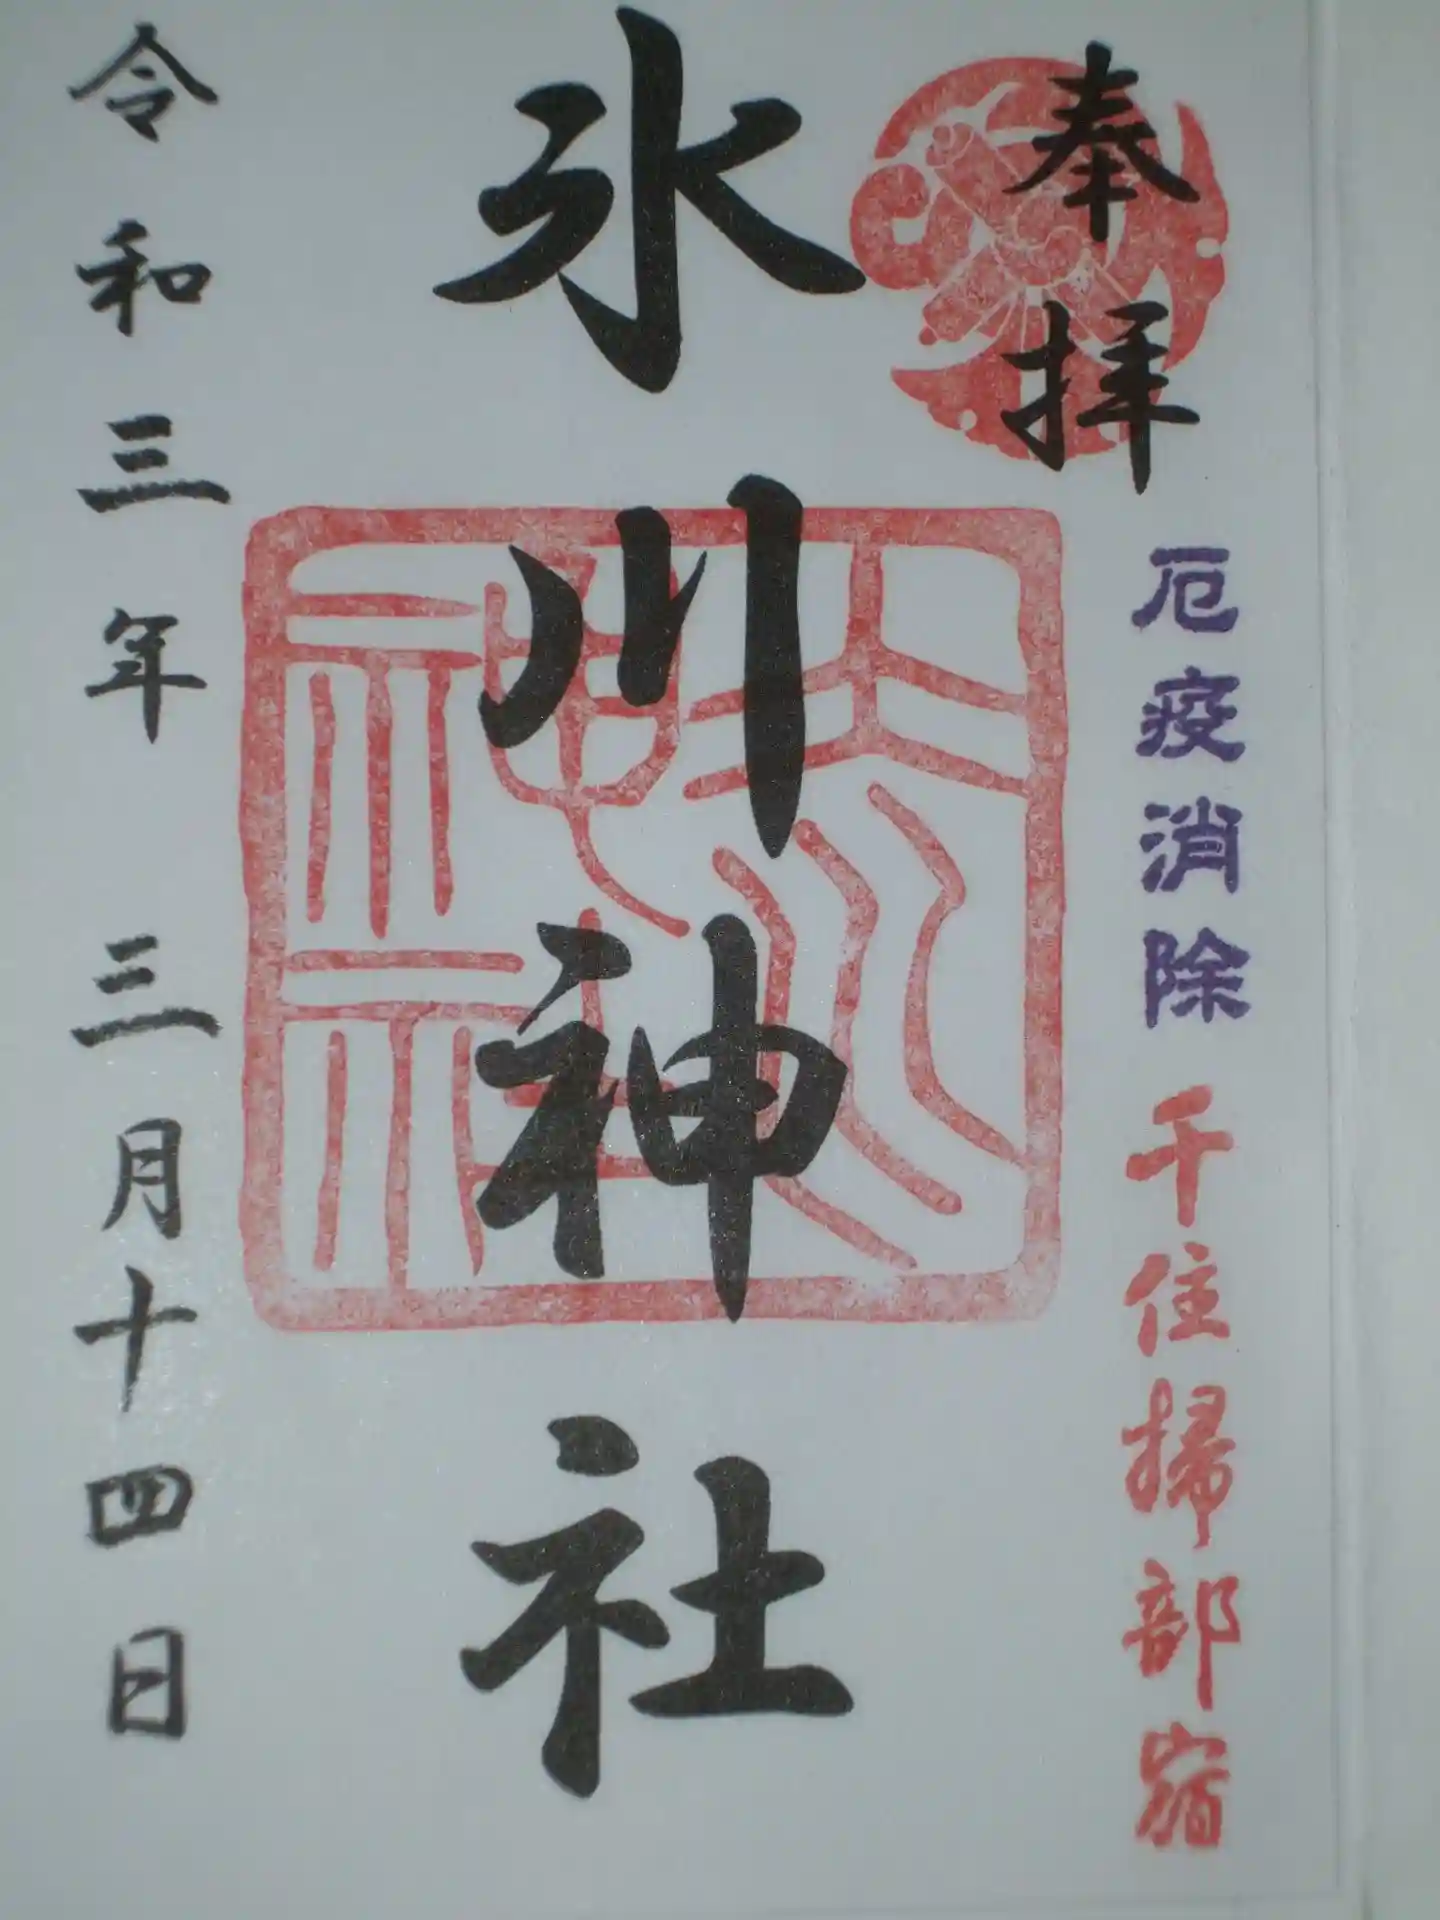 奉拝
厄疫消除 千住掃部宿
氷川神社
氷川神社
令和三年 三月十四日